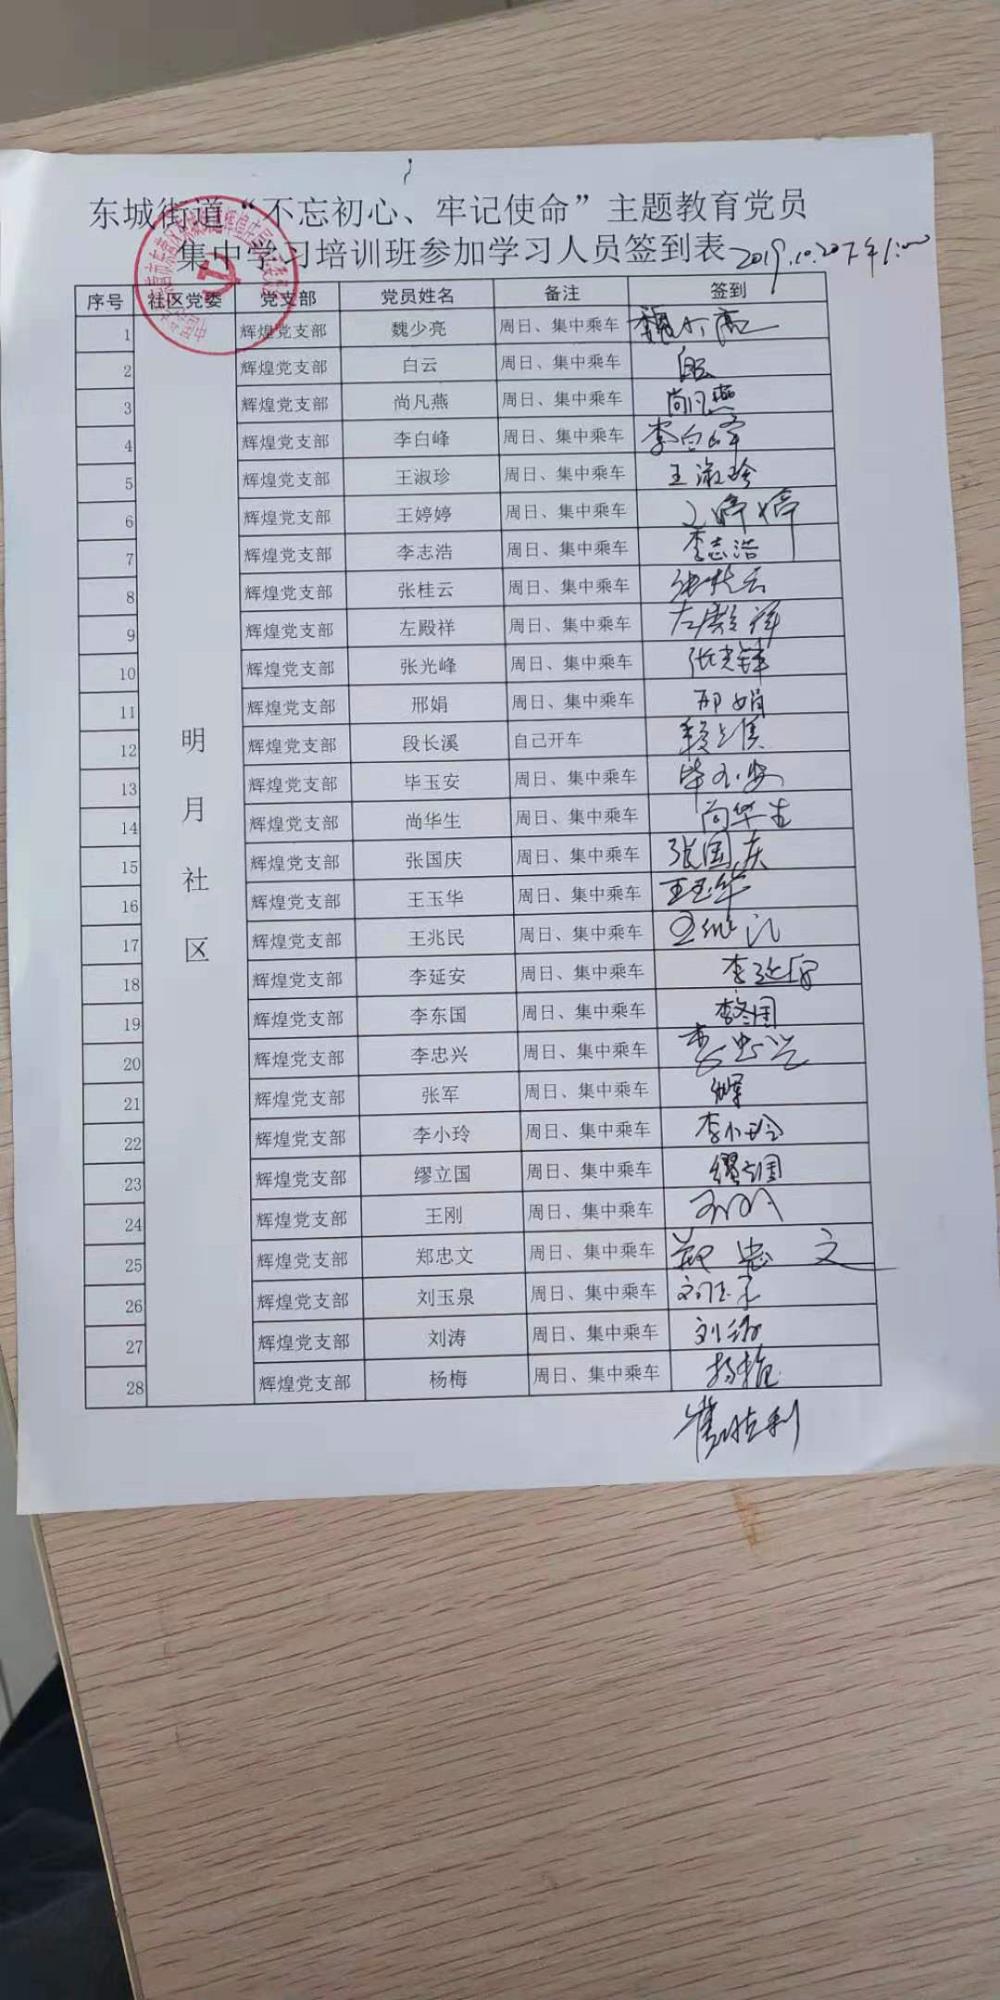 东城街道“不忘初心、牢记使命”主题教育党员
集中学习培训班参加学习人员签到表 2019.10.20下午1:00
序号 社区党委 党支部 党员姓名 备注 签到
明月社区
1 辉煌党支部 魏少亮 周日、集中乘车 魏少亮
2 辉煌党支部 白云 周日、集中乘车 白云
3 辉煌党支部 尚凡燕 周日、集中乘车 尚凡燕
4 辉煌党支部 李白峰 周日、集中乘车 李白峰
5 辉煌党支部 王淑珍 周日、集中乘车 王淑珍
6 辉煌党支部 王婷婷 周日、集中乘车 王婷婷
7 辉煌党支部 李志浩 周日、集中乘车 李志浩
8 辉煌党支部 张桂云 周日、集中乘车 张桂云
9 辉煌党支部 左殿祥 周日、集中乘车 左殿祥
10 辉煌党支部 张光峰 周日、集中乘车 张光锋
11 辉煌党支部 邢娟 周日、集中乘车 邢娟
12 辉煌党支部 段长溪 自己开车
13 辉煌党支部 毕玉安 周日、集中乘车 毕玉安
14 辉煌党支部 尚华生 周日、集中乘车 尚华生
15 辉煌党支部 张国庆 周日、集中乘车 张国庆
16 辉煌党支部 王玉华 周日、集中乘车 王玉华
17 辉煌党支部 王兆民 周日、集中乘车
18 辉煌党支部 李延安 周日、集中乘车 李延安
19 辉煌党支部 李东国 周日、集中乘车 李东国
20 辉煌党支部 李忠兴 周日、集中乘车 李忠兴
21 辉煌党支部 张军 周日、集中乘车 张军
22 辉煌党支部 李小玲 周日、集中乘车 李小玲
23 辉煌党支部 缪立国 周日、集中乘车 缪立国
24 辉煌党支部 王刚 周日、集中乘车 王刚
25 辉煌党支部 郑忠文 周日、集中乘车 郑忠文
26 辉煌党支部 刘玉泉 周日、集中乘车 刘玉泉
27 辉煌党支部 刘涛 周日、集中乘车 刘涛
28 辉煌党支部 杨梅 周日、集中乘车 杨梅
崔胜利